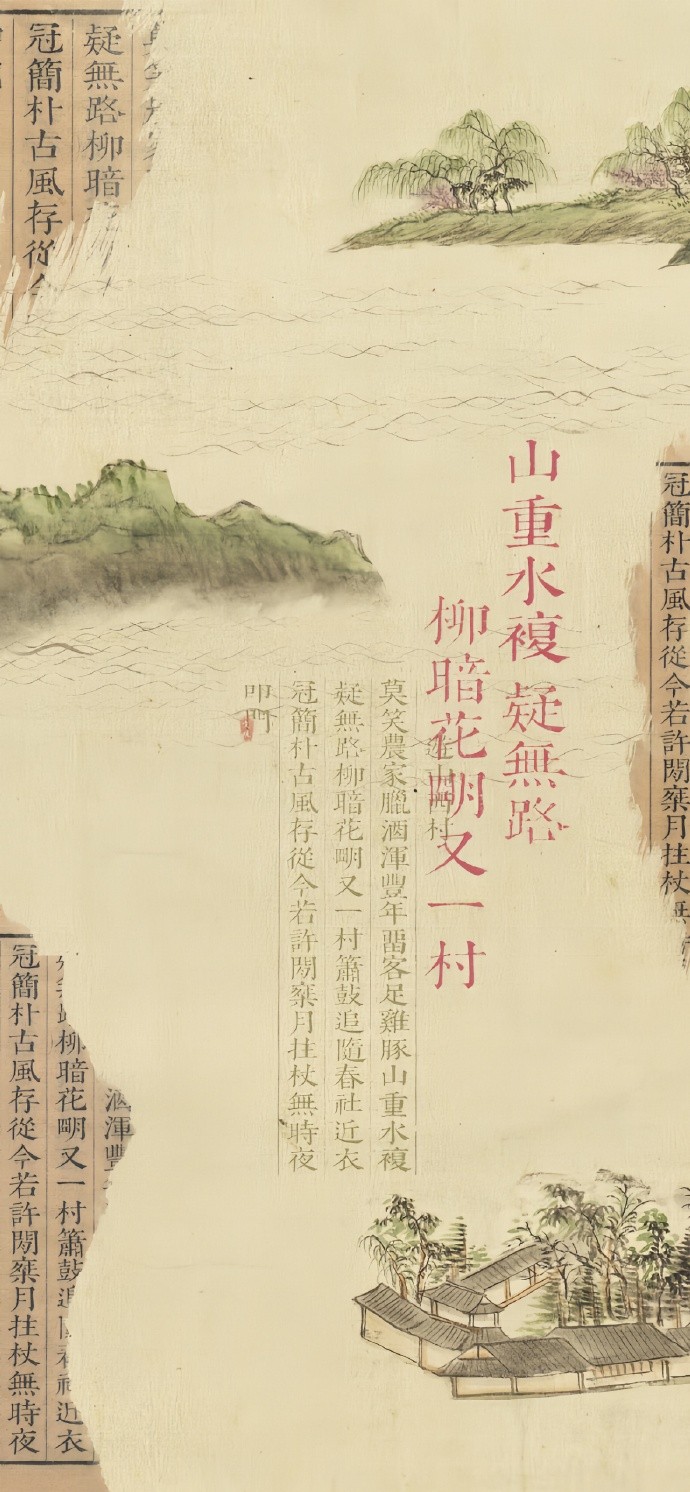 疑無路柳暗花
冠簡朴古風存從今
山重水複疑無路
柳暗花明又一村
冠簡朴古風存從今若許閒乘月拄杖無
遊山西村
莫笑農家臘酒渾豐年畱客足雞豚山重水複
疑無路柳暗花明又一村簫鼓追隨春社近衣
冠簡朴古風存從今若許閒乘月拄杖無時夜
叩門
酒渾豐
柳暗花明又一村簫鼓追隨春社近衣
冠簡朴古風存從今若許閒乘月拄杖無時夜